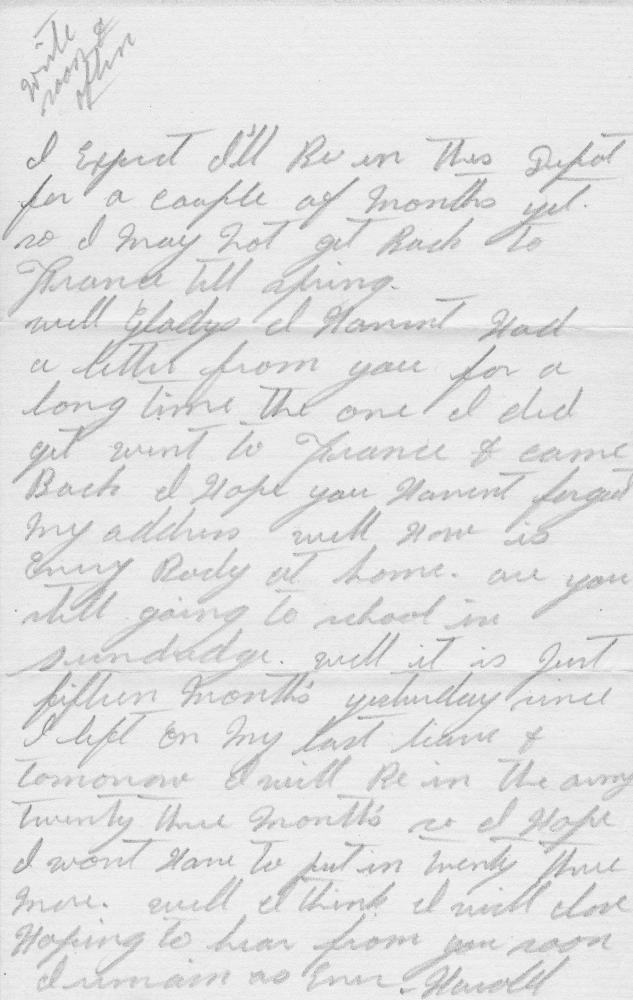 write
soon &
often
I Expect I'll Be in this Depot
for a couple of Months yet.
so I May Not get Back to
France till spring.
well Gladys I Havent Had
a letter from you for a
long time the one I did
get went to France & came
Back I Hope you Havent forgot
My address well How is
Every Body at home. are you
still going to school in
Sundadge. well it is Just
fifteen Months yesterday since
I left On My last leave &
tomorrow I will Be in the army
twenty three Months so I Hope
I wont Have to put in twenty three
More. well I think I will close
Hoping to hear from you soon
I remain as Ever. Harold